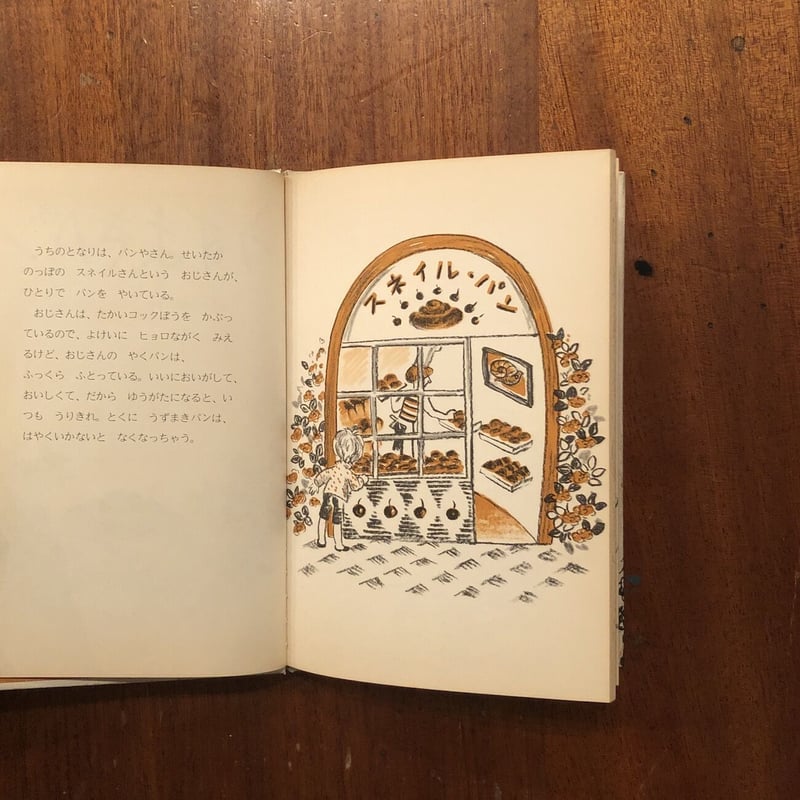 うちのとなりは、パンやさん。せいたか
のっぽの　スネイルさんという　おじさんが、
ひとりで　パンを　やいている。
おじさんは、たかいコックぼうを　かぶっ
ているので、よけいに　ヒョロながく　みえ
るけど、おじさんの　やくパンは、
ふっくら　ふとっている。いいにおいがして、
おいしくて、だから　ゆうがたになると、い
つも　うりきれ。とくに　うずまきパンは、
はやくいかないと　なくなっちゃう。
スネイル・パン